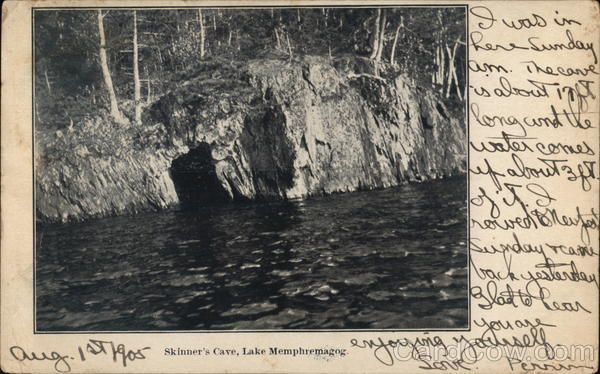 I was in
here Sunday
a.m. The cave
is about 17 ft
long and the
water comes
up about 3 ft
of it. I
rowed to Newport
Sunday & came
back yesterday
Glad to hear
you are
enjoying yourself.
Skinner's Cave, Lake Memphremagog.
Aug. 1st 1905
CardCow.com